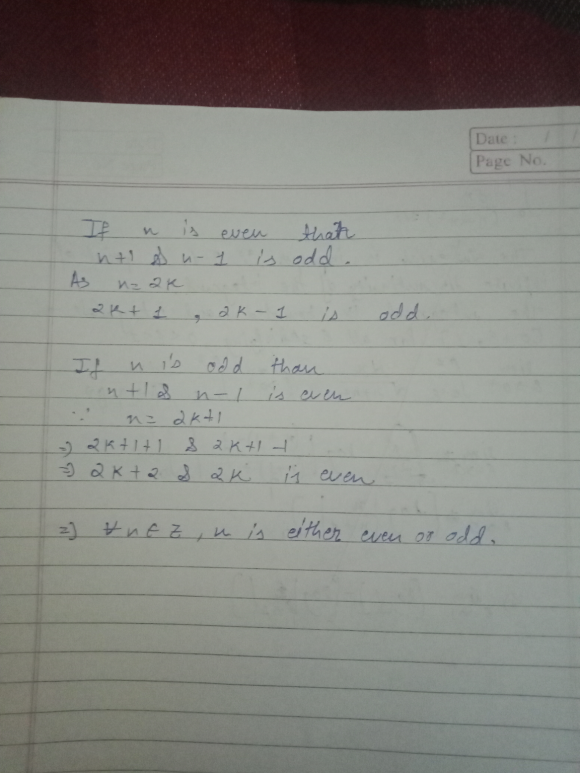 Date : / /
Page No.
If n is even than
n+1 & n-1 is odd.
As n=2K
2K+1 , 2K-1 is odd.
If n is odd than
n+1 & n-1 is even
∵ n= 2K+1
=) 2K+1+1 & 2K+1-1
=) 2K+2 & 2K is even
=) ∀n∈Z, n is either even or odd.